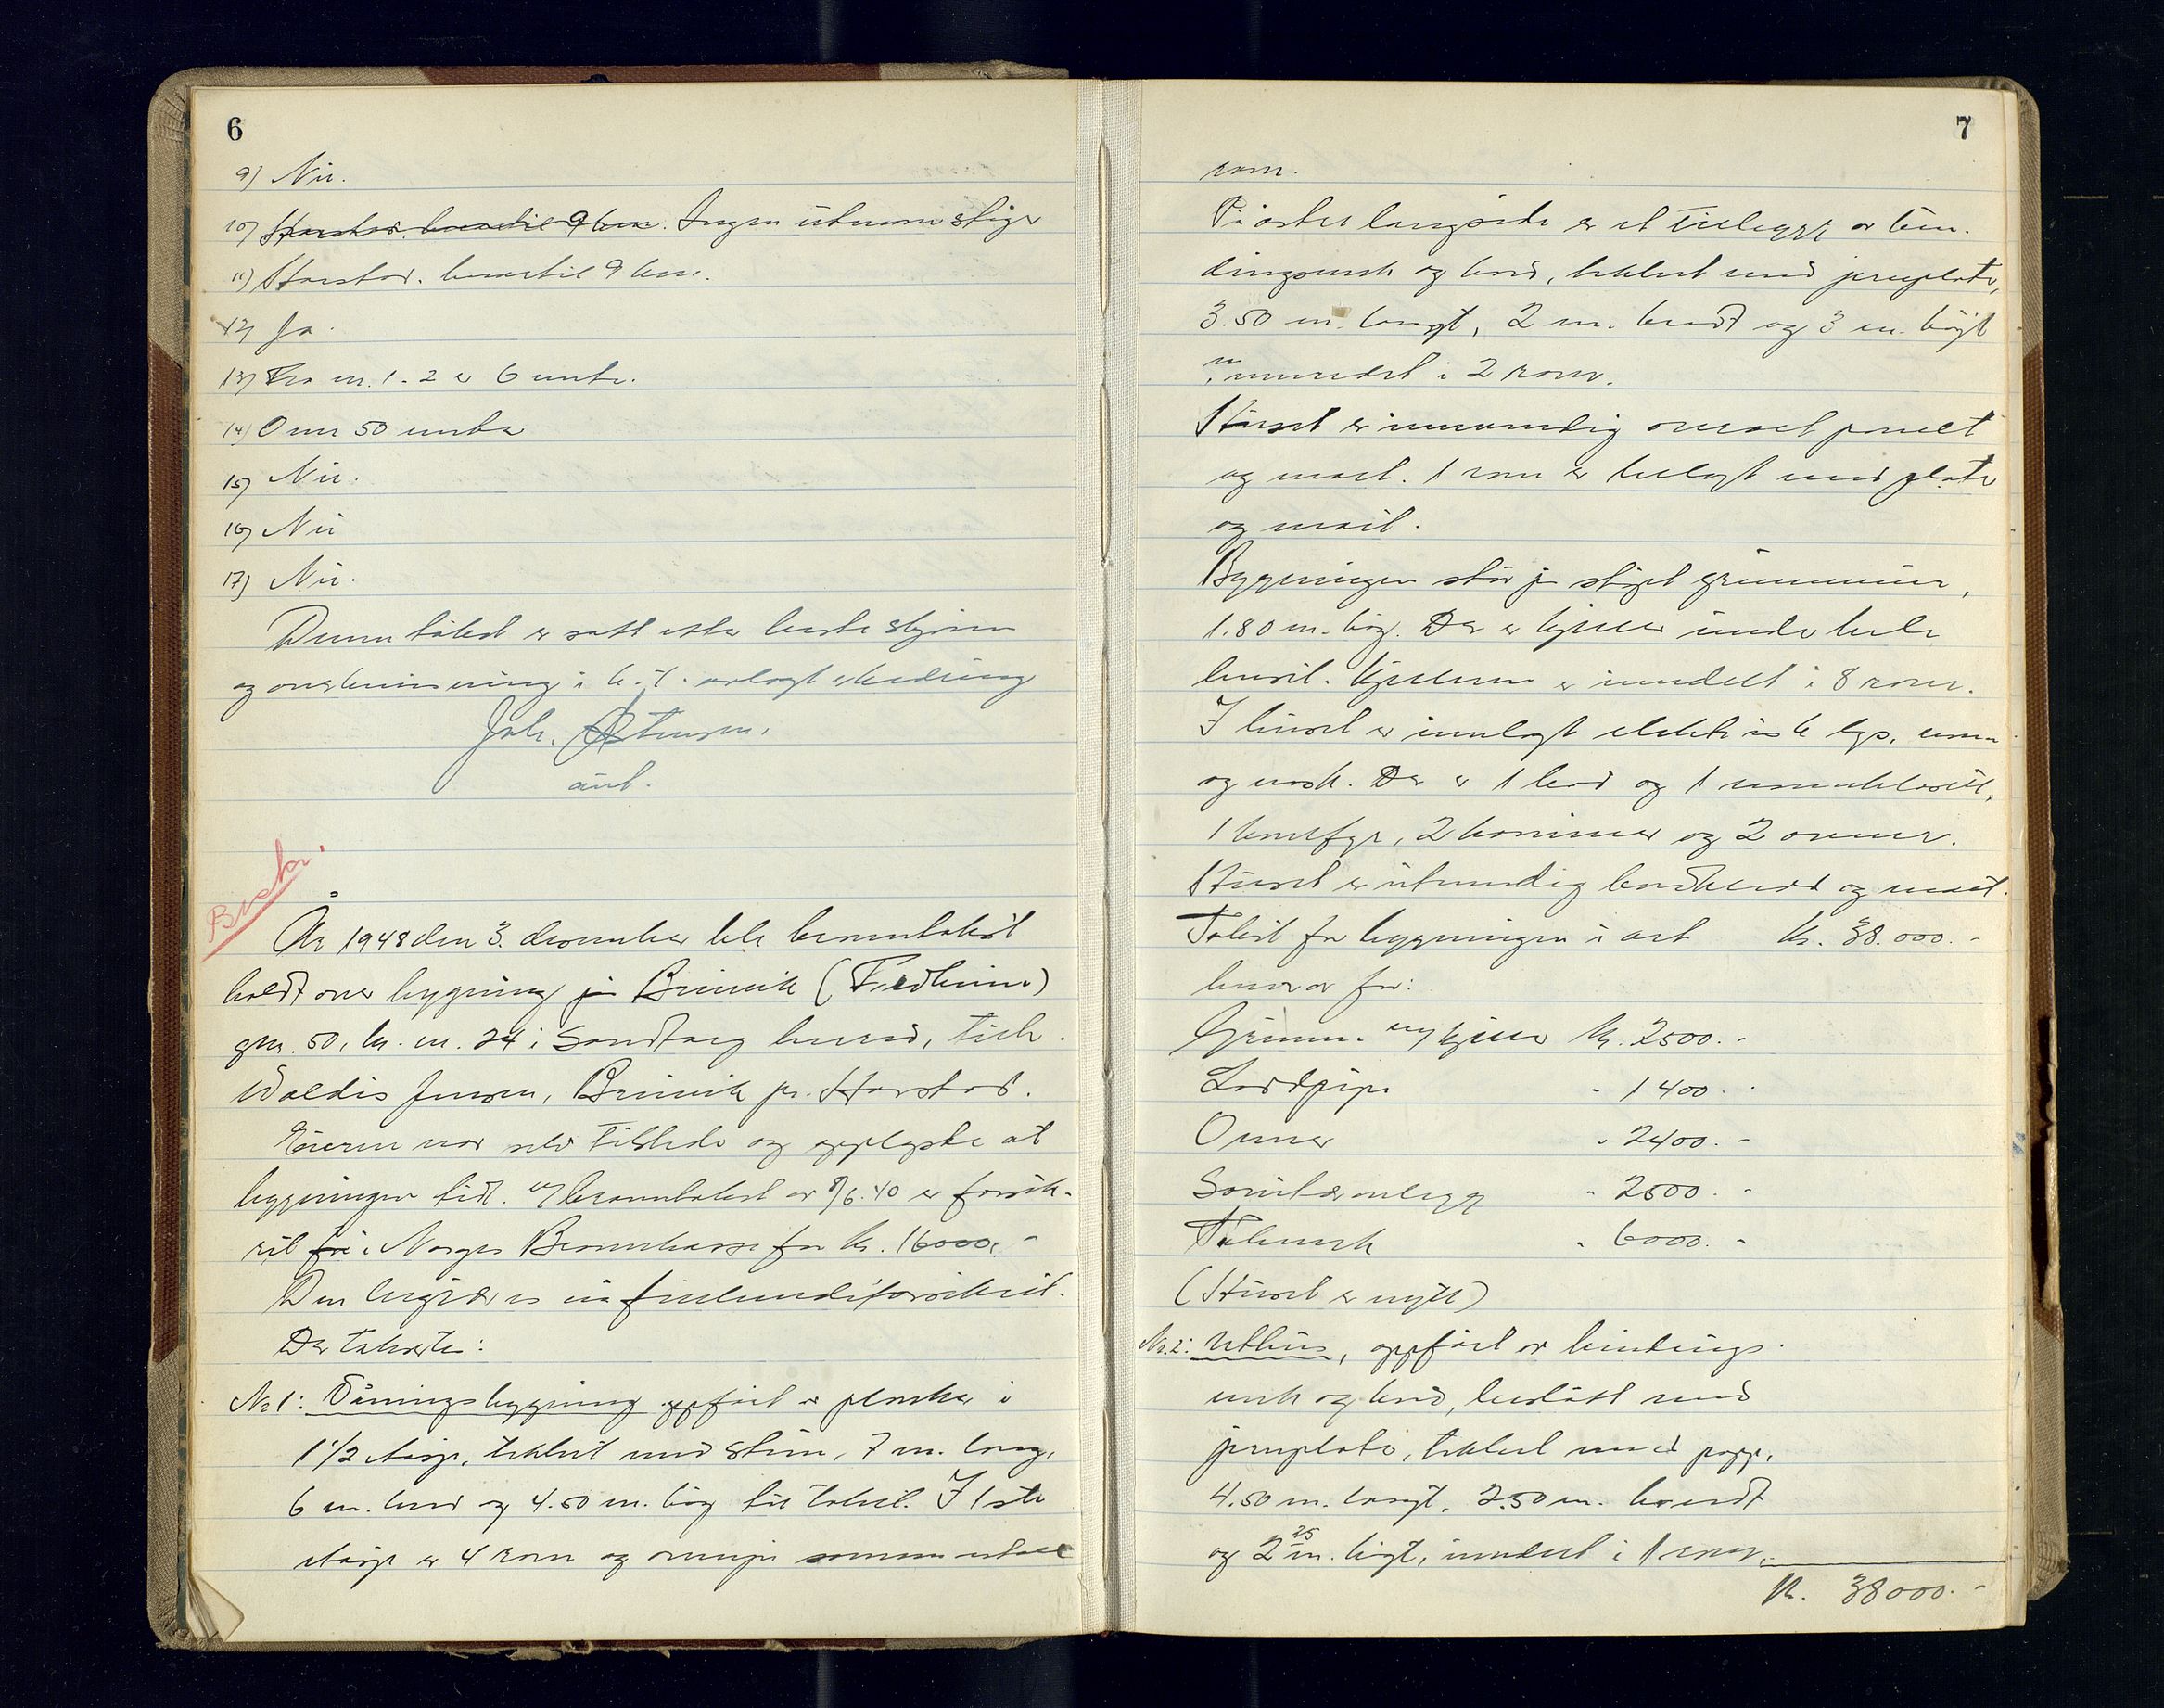 6
9) Nei.
10) Harstad. branntil 9 km. Ingen utvann stige
11) Harstad. branntil 9 km.
12) Ja.
13) Fra nr. 1 - 2 er 6 mtr.
14) Over 50 mtr
15) Nei.
16) Nei
17) Nei.
Denne takst er satt etter beste skjønn
og overbevisning i h. t. avlagt
Joh.
Brakr.
År 1948 den 3. desember ble branntakst
holdt over bygning på Brinvik (Fredheim)
gnr. 50, br. nr. 24 i Sandtorg herred, tilh.
Valdis Jensen, Brinvik pr. Harstad.
Eieren var selv tilstede og opplyste at
bygningen tidl. branntakst av 8/6.40 er forsik-
ret i Norges Brannkasse for kr. 16000.-
Den begjæres nå fullverdiforsikret.
Der takserte:
Nr 1: Våningsbygning oppført av planker i
1 1/2 etasje, tekket med sten, 7 m. lang,
6 m. bred og 4.50 m. høg til taket. I 1ste
etasje er 4 rom og ovenpå samme antall
7
rom.
På østre langside er et tillegg av bin-
dingsverk og bord, tekket med jernplater,
3.50 m. langt, 2 m. bredt og 3 m. høgt
inndelt i 2 rom.
Huset er innvendig overalt panelt
og malt. 1 rom er belagt med plater
og malt.
Bygningen står på støpt grunnmur,
1.80 m. høg. Der er kjeller under hele
huset. Kjelleren er inndelt i 8 rom.
I huset er innlagt elektrisk lys, vann
og vask. Der er 1 bad og 1 vannklosett,
1 komfyr, 2 kaminer og 2 ovner.
Huset er utvendig bordkledd og malt.
Takst for bygningen i alt kr. 38.000.-
hvorav for:
Grunnm. og kjeller kr. 2500.-
Lordpipe " 1400.-
Ovner " 2400.-
Sanitæranlegg " 2500.-
Takverk " 6000.-
(Huset er nytt)
Nr. 2: Uthus, oppført av bindings-
verk og bord, beslått med
jernplater, tekket med papp,
4.50 m. langt, 2.50 m. bredt
og 2 25 m. høgt, inndelt i 1 rom.
kr. 38000.-